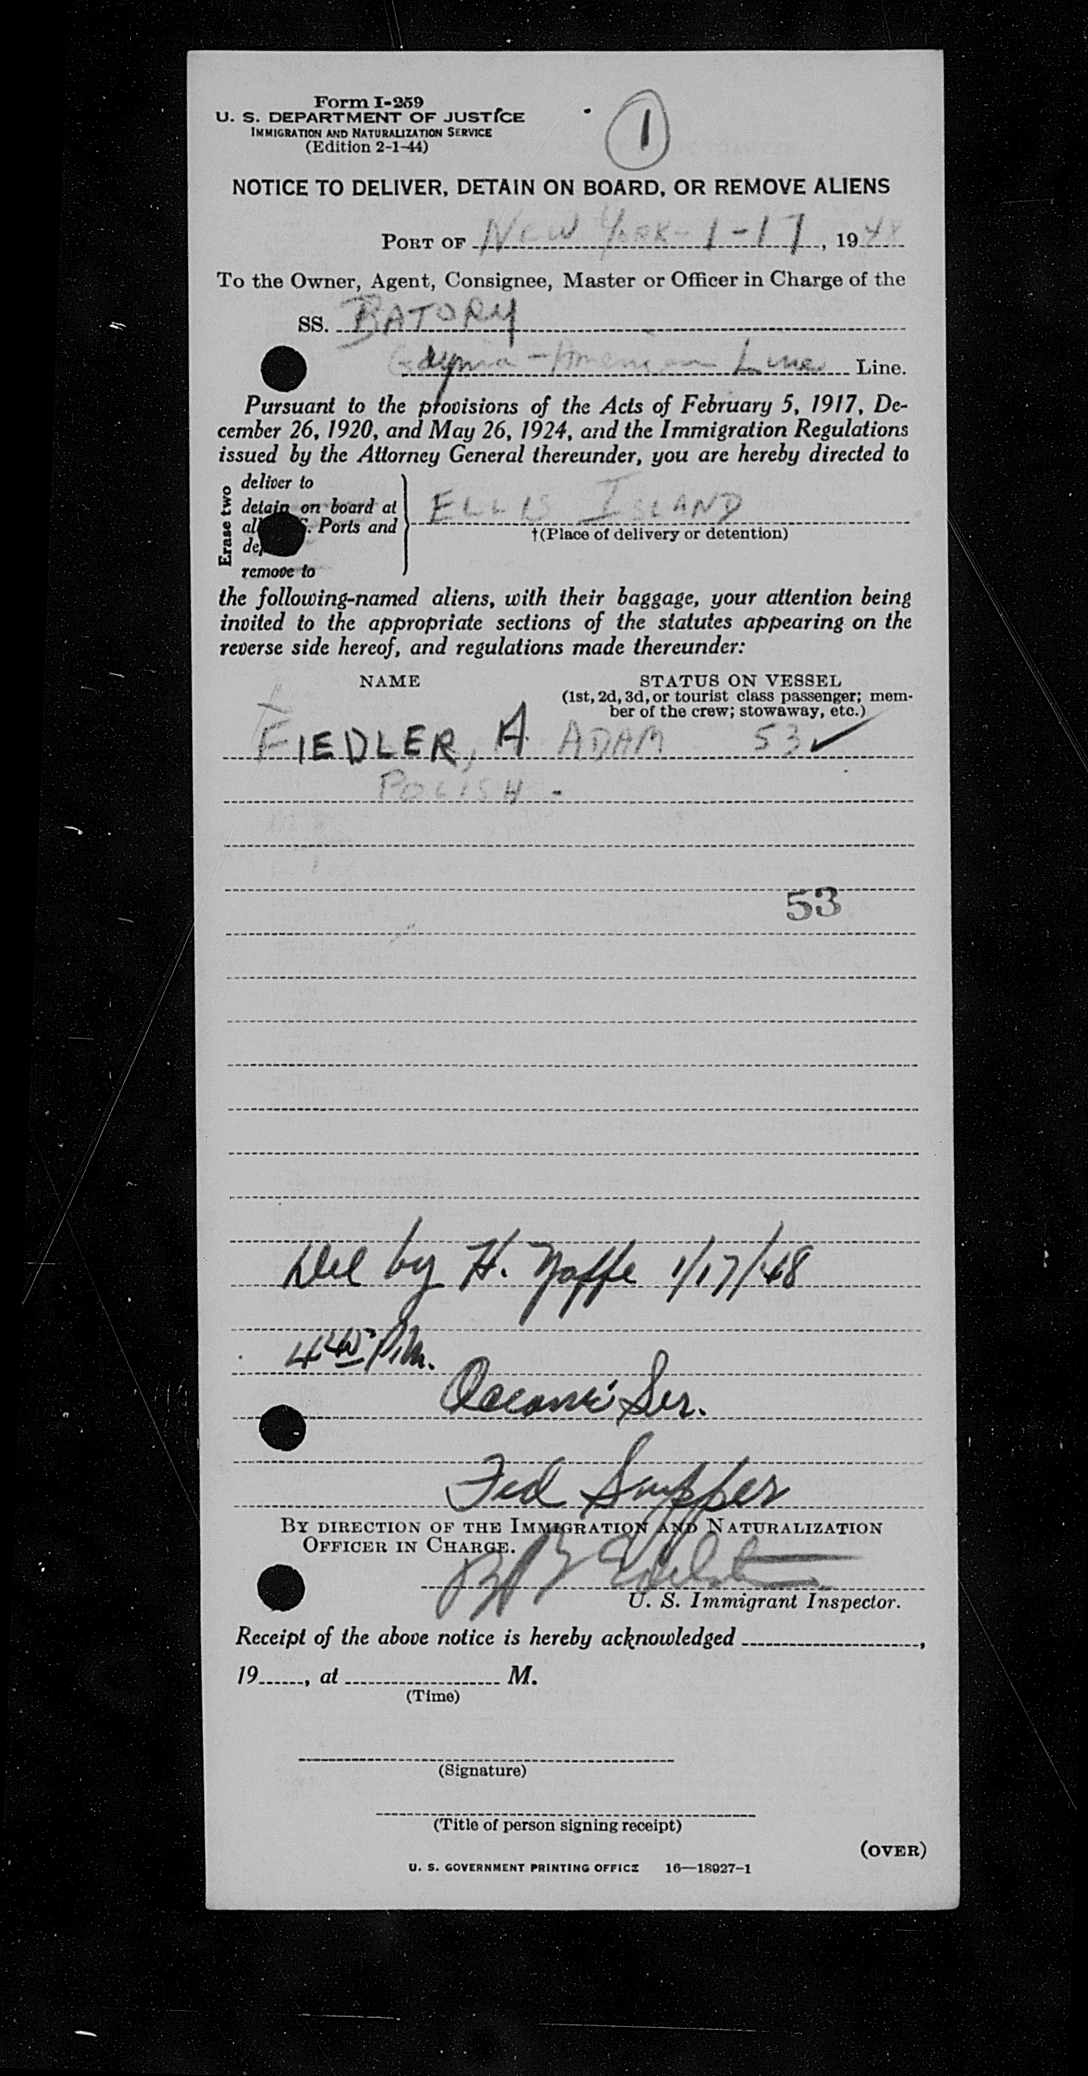 Form I-259
U. S. DEPARTMENT OF JUSTICE
IMMIGRATION AND NATURALIZATION SERVICE
(Edition 2-1-44)
1
NOTICE TO DELIVER, DETAIN ON BOARD, OR REMOVE ALIENS
PORT OF NEW YORK - 1-17, 1948
To the Owner, Agent, Consignee, Master or Officer in Charge of the
SS. BATORY
Gdynia - American Line Line.
Pursuant to the provisions of the Acts of February 5, 1917, De-
cember 26, 1920, and May 26, 1924, and the Immigration Regulations
issued by the Attorney General thereunder, you are hereby directed to
Erase two
deliver to
detain on board at
all Ports and
remove to
ELLIS ISLAND
†(Place of delivery or detention)
the following-named aliens, with their baggage, your attention being
invited to the appropriate sections of the statutes appearing on the
reverse side hereof, and regulations made thereunder:
NAME
STATUS ON VESSEL
(1st, 2d, 3d, or tourist class passenger; mem-
ber of the crew; stowaway, etc.)
FIEDLER, A ADAM 53 ✓
POLISH -
53
Del by H. Yoffe 1/17/48
4 40 P.M.
Ser.
By DIRECTION OF THE IMMIGRATION AND NATURALIZATION
OFFICER IN CHARGE.
U. S. Immigrant Inspector.
Receipt of the above notice is hereby acknowledged ,
19 , at M.
(Time)
(Signature)
(Title of person signing receipt)
(OVER)
U. S. GOVERNMENT PRINTING OFFICE 16—18927-1